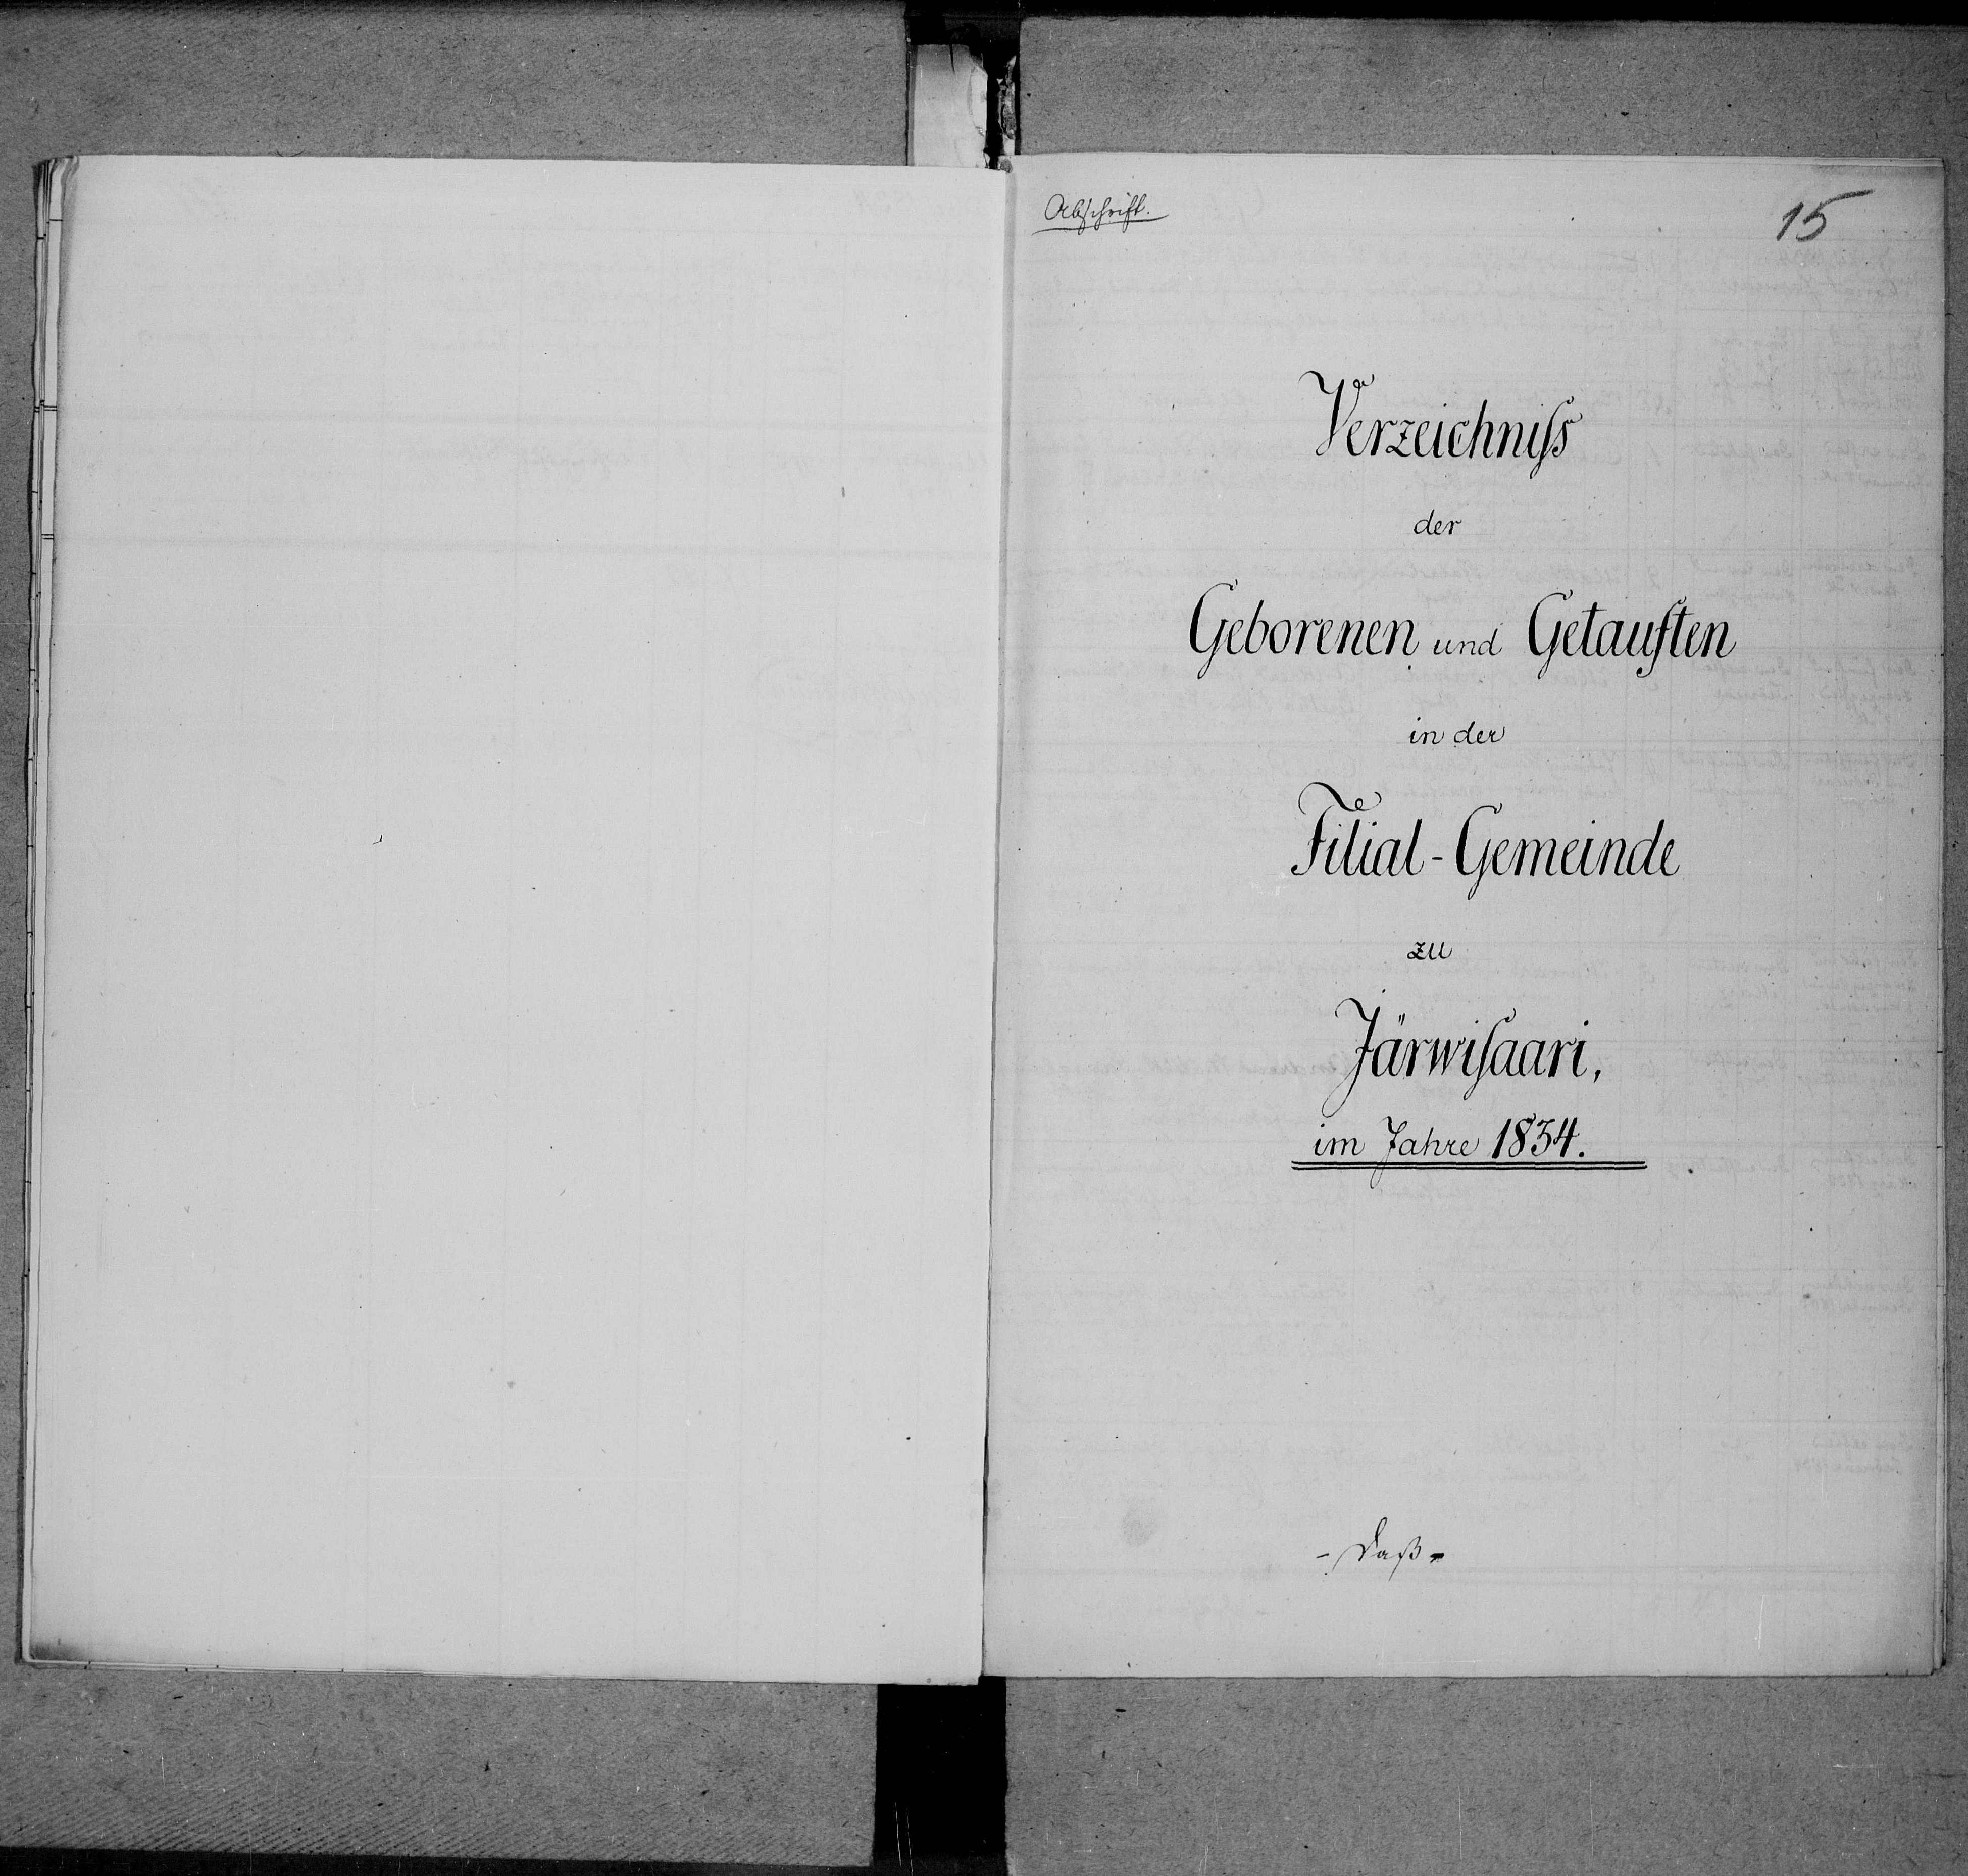 Abschrift.
15
Verzeichniſs
der
Geborenen und Getauften
in der
Filial-Gemeinde
zu
Järwiſaari,
im Jahre 1834.
- Daß -